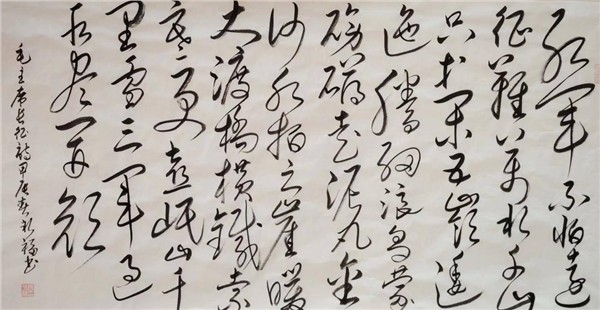 红军不怕遠
征難万水千山
只等闲五嶺逶
迤騰细浪烏蒙
磅礴走泥丸金
沙水拍云崖暖
大渡橋横鐵索
寒更喜岷山千
里雪三军过
后尽开颜
毛主席长征诗甲辰春
书